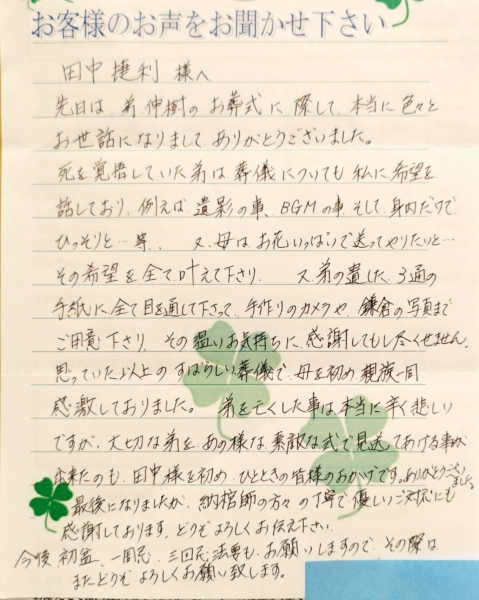 お客様のお声をお聞かせ下さい
田中 捷利 様へ
先日は、弟 伸樹の お葬式に 際して、本当に色々と
お世話になりまして、ありがとうございました。
死を覚悟していた弟は、葬儀についても 私に希望を
話しており、例えば、遺影の事、BGMの事、そして、身内だけで
ひっそりと…等、 又、母は、お花いっぱいで送ってやりたいと…
その希望を全て叶えて下さり、 又、弟の遺した、3通の
手紙に全て目を通して下さって、手作りのカメラや、鎌倉の写真まで
ご用意下さり、その温いお気持ちに、感謝してもし尽くせません。
思っていた以上のすばらしい葬儀で、母を初め親族一同
感激しておりました。 弟を亡くした事は本当に辛く悲しい
ですが、大切な弟を、あの様な素敵な式で見送ってあげる事が
出来たのも、田中様を初め、ひとときの皆様のおかげです。ありがとうござい
ました。
最後になりましたが、納棺師の方々の丁寧で優しいご対応にも
感謝しております。どうぞよろしくお伝え下さい。
今後、初盆、一周忌、三回忌法要も、お願いしますので、その際は
またどうぞ よろしくお願い致します。